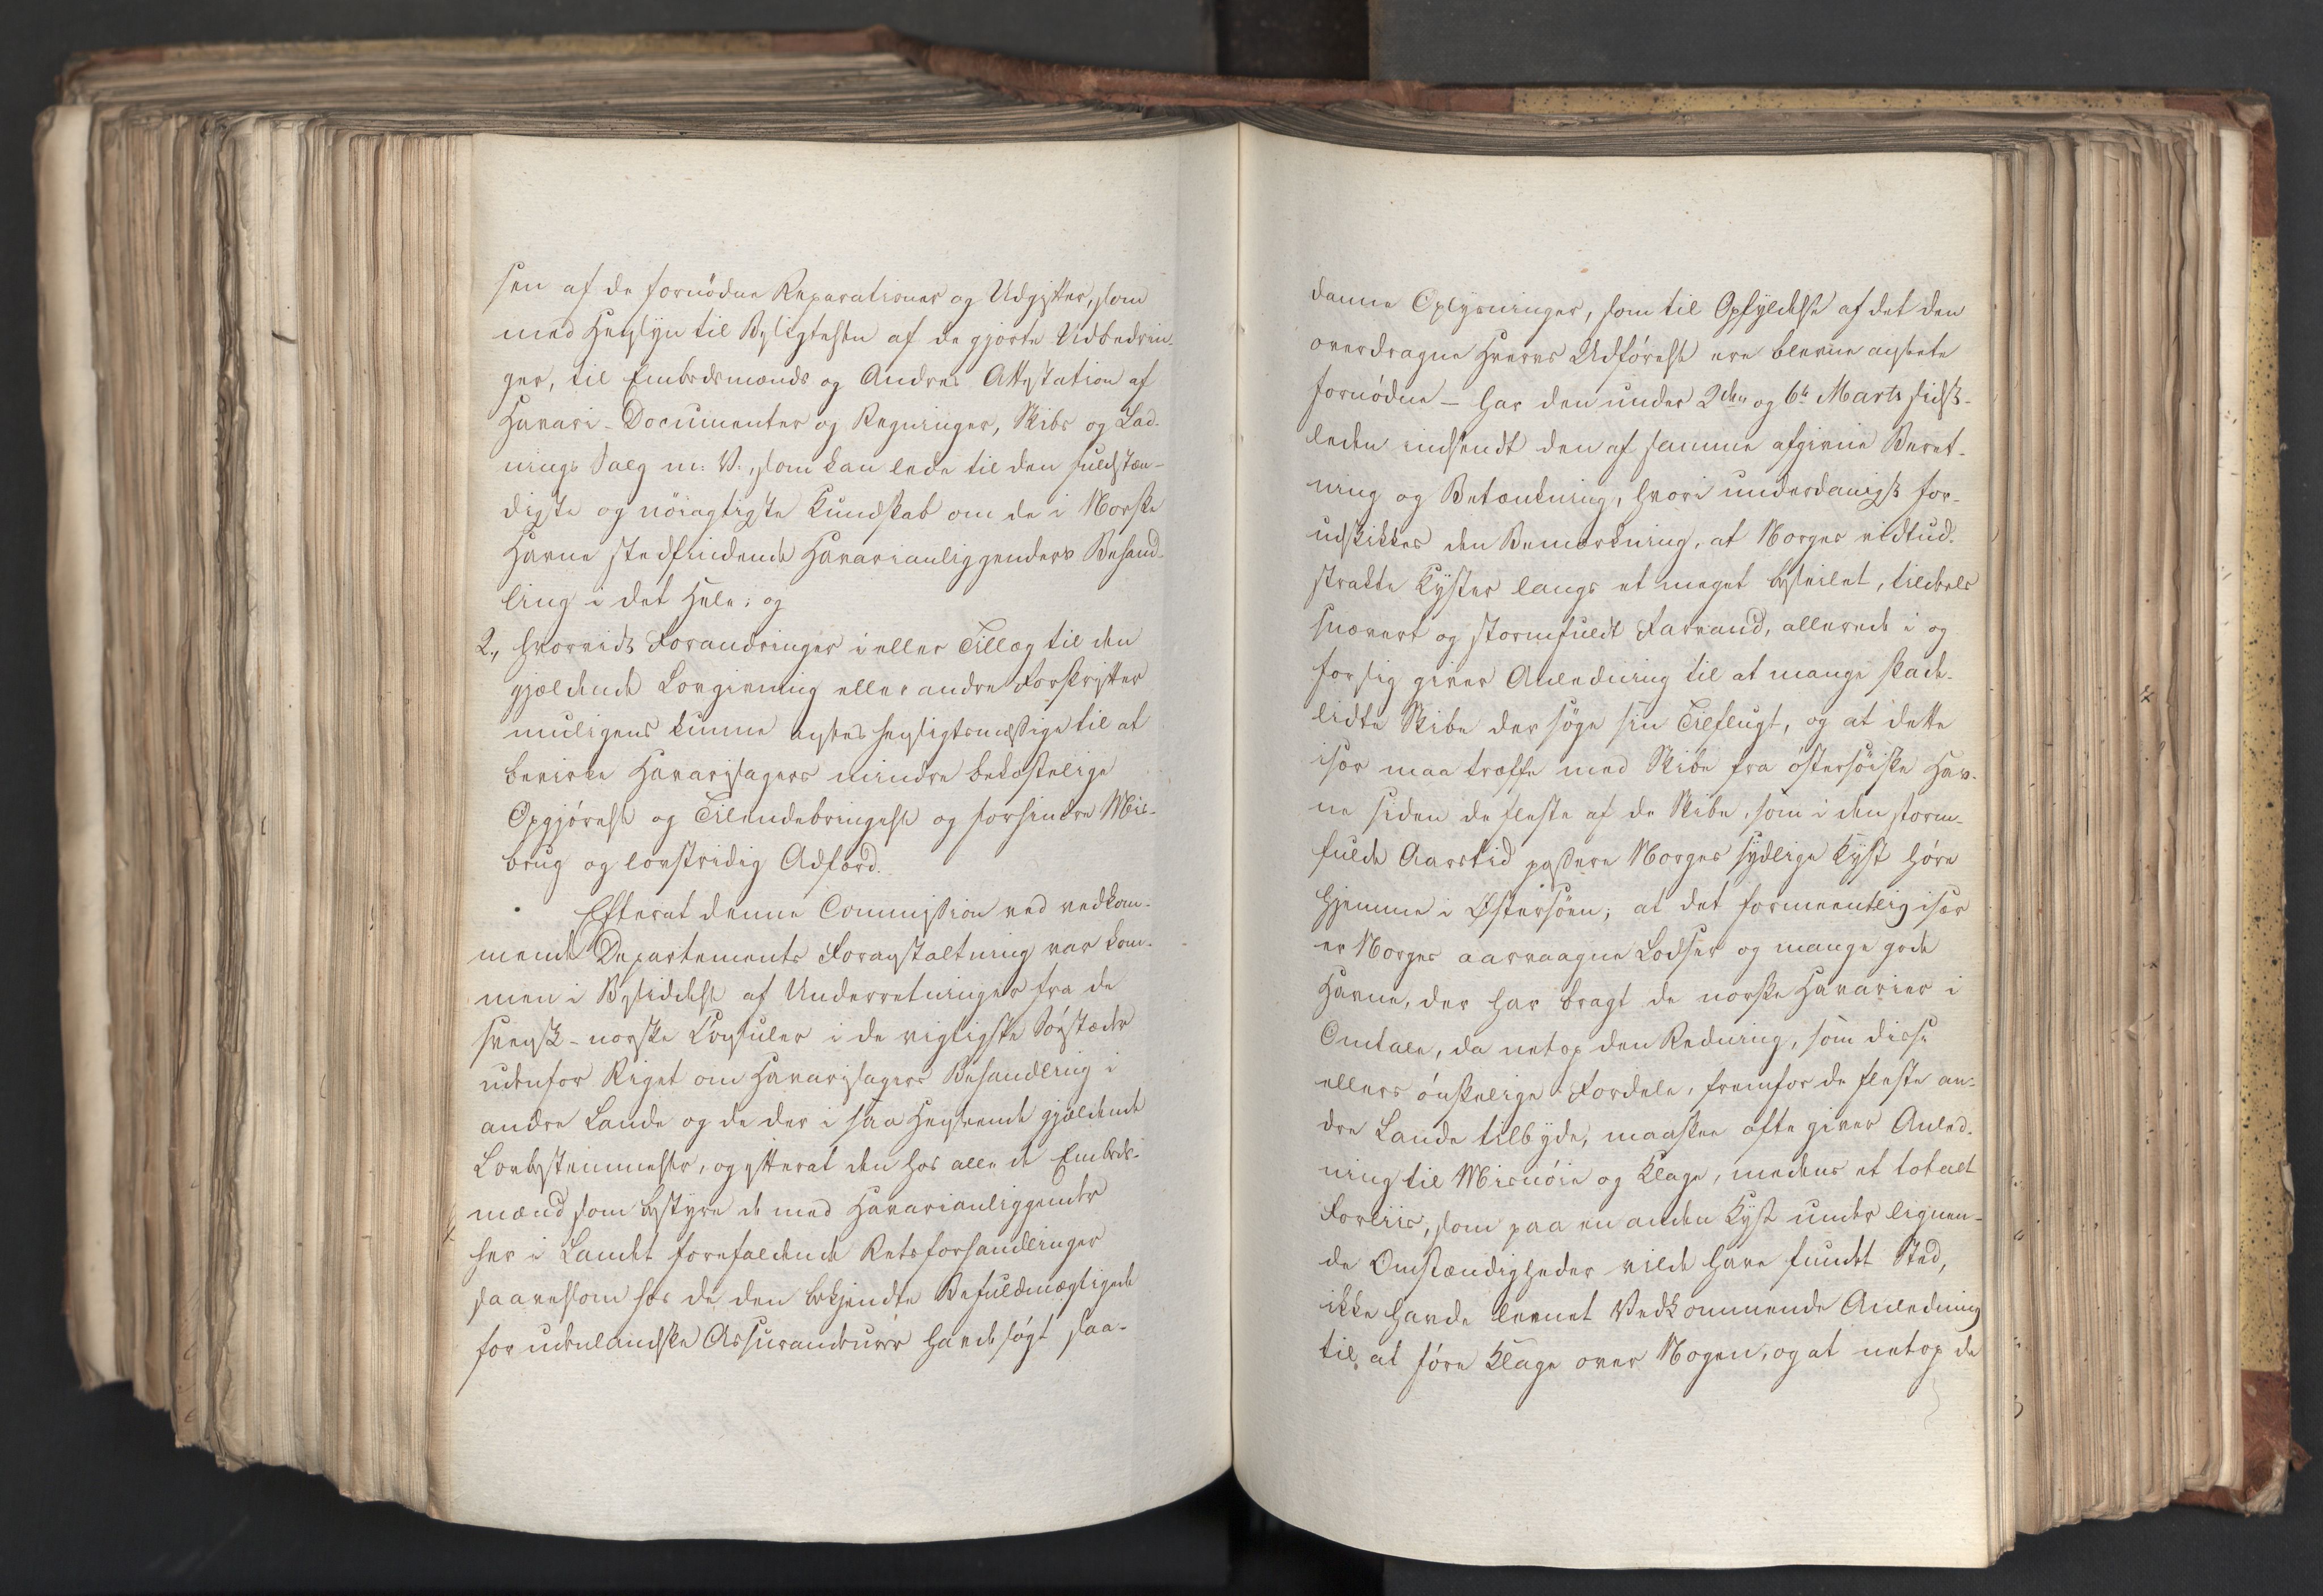 sen af de fornödne Reparationer og Udgifter, som
med Hensyn til Besigtelsen af de gjorte Udbedrin-
ger, til Embedsmænds og Andres Attestation af
Havari-Documenter og Regninger, Skibs og Lad-
nings Salg m: V:, som kan lede til den fuldstæn-
digste og nöiagtigste Kundskab om de i Norske
Havne stedfindende Havarianliggenders Behand-
ling i det Hele; og
2., hvorvidt Forandringer i eller Tillæg til den
gjældende Lovgivning eller andre Forskrifter
muligens kunne ansees hensigtsmæssige til at
bevirke Havarisagers mindre bekostelige
Opgjörelse og Tilendebringelse og forhindre Mis-
brug og lovstridig Adfærd.
Efterat denne Commission ved vedkom-
mende Departements Foranstaltning var kom-
men i Besiddelse af Underretninger fra de
svensk-norske Consuler i de vigtigste Söestæder
udenfor Riget om Havarisagers Behandling i
andre Lande og de der i saa Henseende gjældende
Lovbestemmelser, og efterat den hos alle de Embeds-
mænd som bestyre de med Havarianliggender
her i Landet forefaldende Retsforhandlinger
saavelsom hos de den bekjendte Befuldmægtigede
for udenlandske Assurandeurer havde sögt saa-
danne Oplysninger, som til Opfyldelse af det den
overdragne Hvervs Udförelse ere blevne ansete
fornödne – har den under 2den og 6te Marts sidst-
leden indsendt den af samme afgivne Beret-
ning og Betænkning, hvori underdanigst for-
udskikkes den Bemærkning, at Norges vidtud-
strakte Kyster langs et meget beseilet, tildeels
snævert og stormfuldt Farvand, allerede i og
for sig giver Anledning til at mange skade-
lidte Skibe der söge sin Tilflugt, og at dette
især maa træffe med Skibe fra östersöiske Hav-
ne siden de fleste af de Skibe, som i den storm-
fulde Aarstid passere Norges sydlige Kyst höre
hjemme i Östersöen; at det formeentlig især
er Norges aarvaagne Lodser og mange gode
Havne, der har bragt de norske Havarier i
Omtale, da netop den Redning, som disse
ellers önskelige Fordele, fremfor de fleste an-
dre Lande tilbyde, maaskee ofte giver Anled-
ning til Misnöie og Klage, medens et totalt
Forliis, som paa en anden Kyst under lignen-
de Omstændigheder vilde have fundet Sted,
ikke havde levnet Vedkommende Anledning
til at före Klage over Nogen, og at netop de